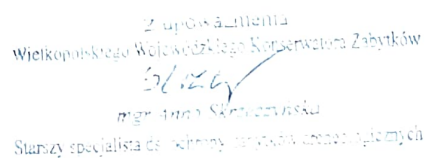 Z upoważnienia
Wielkopolskiego Wojewódzkiego Konserwatora Zabytków
mgr Anna Skrzyczyńska
Starszy specjalista ds. ochrony zabytków archeologicznych